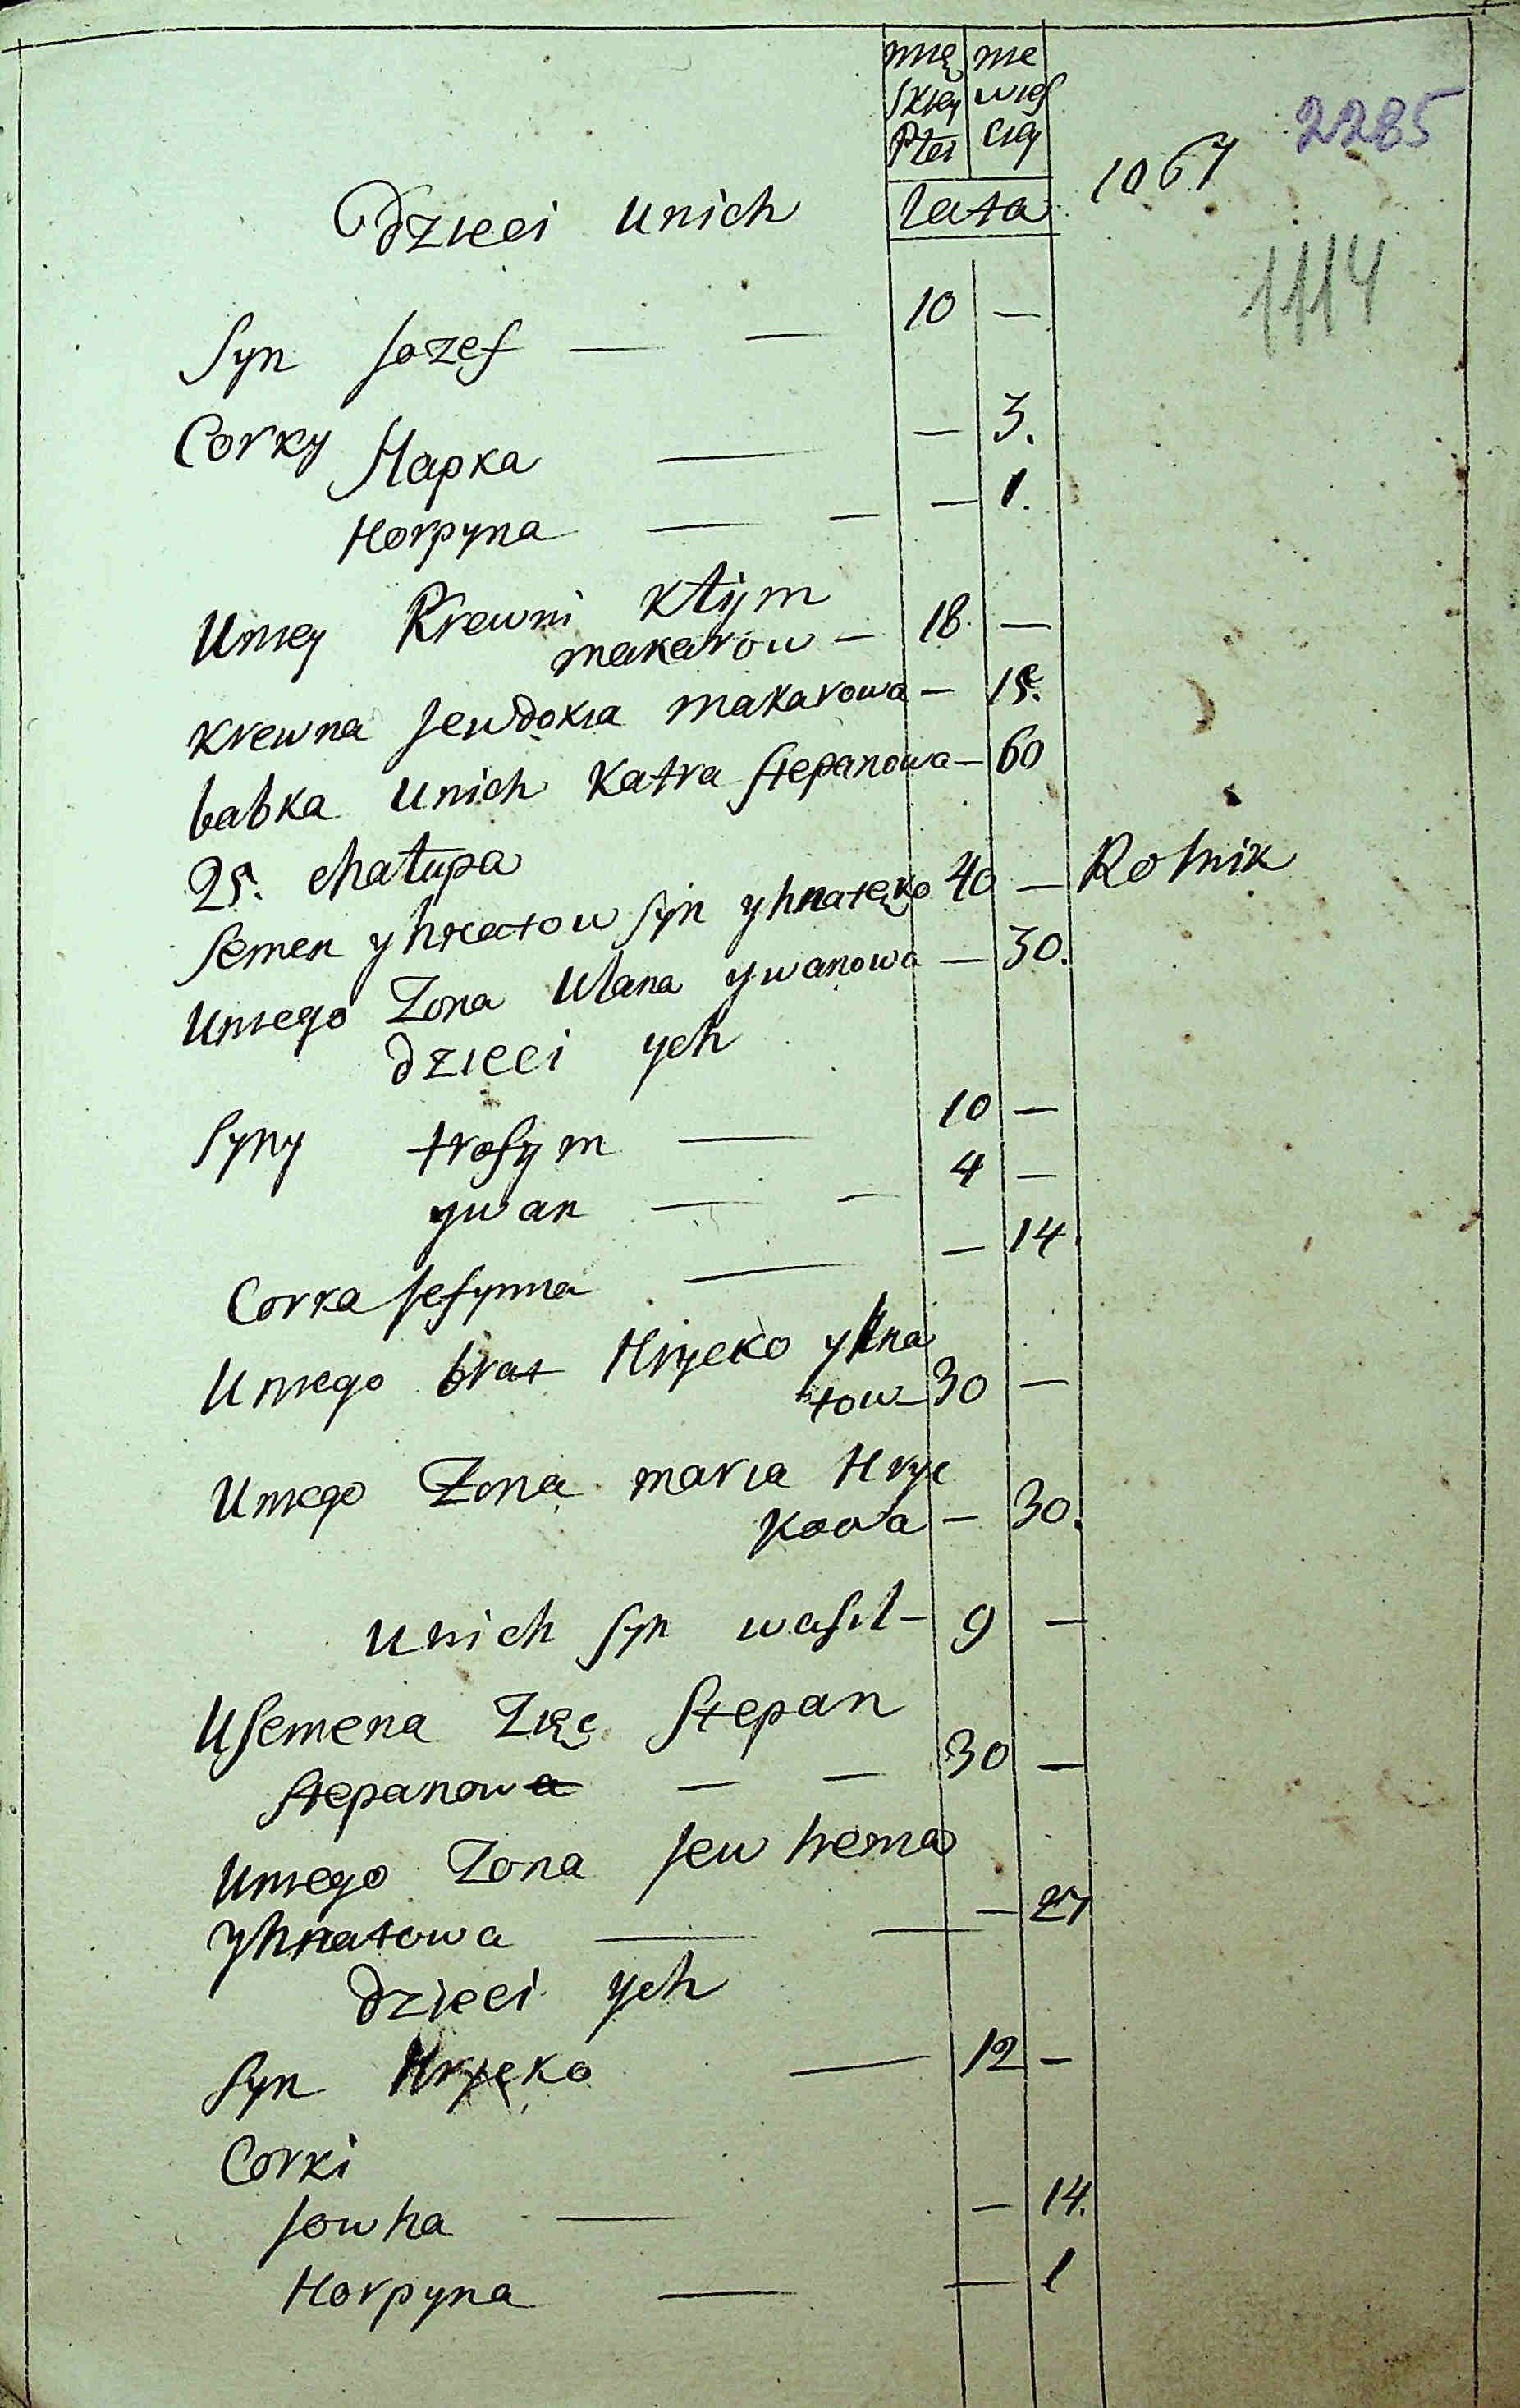 mię nie
skiey wieś
Płei ciey
2285
1067
dzieci unich lata
1114
syn Jozef — — 10 —
Corky Hapka — — 3.
Horpyna — — — 1.
Uniey Krewni Kłym
makarow — 18. —
Krewna Jewdokia makarowa — 15.
babka unich Katra Stepanowa — 60
25. chałupa
Semen yhnatow syn yhnatęko 40 — Rolnik
Uniego Zona Ulana ywanowa — 30.
dzieci ych
Syny trofym — 10 —
ywan — — 4 —
Corka Jefymia — — 14
Uniego brat Hrycko yhna
tow — 30 —
Uniego Zona maria Hryc
kowa — 30.
unich syn wasil — 9 —
USemena Zięc Stepan
Stepanow — — 30 —
Uniego Zona Jewhenia
yhnatowa — — — 27
dzieci ych
syn Hrycko — 12 —
Corki
Jowha — — 14.
Horpyna — — 1